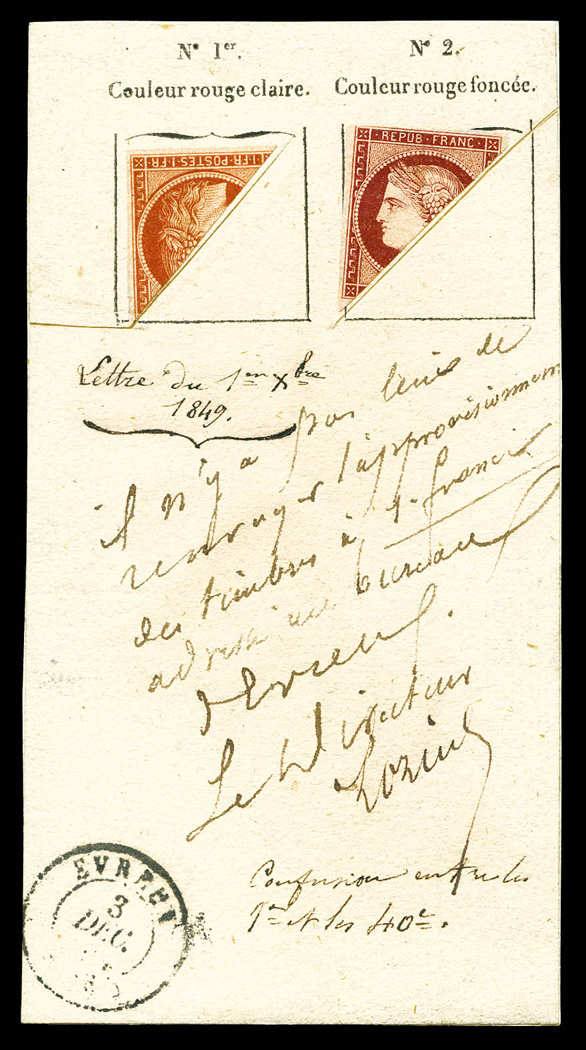 N° 1er.
N° 2.
Couleur rouge claire.
Couleur rouge foncée.
1. FR. POSTES 1. FR
REPUB. FRANC.
Lettre du 1er Xbre
1849.
il n'y a pas lieu de
renvoyer l'approvisionnem
des timbres à 1. franc
adressé au bureau
d'Evreux.
Le Directeur
EVREUX
3
DEC.
Confusion entre les
1fr et les 40c.